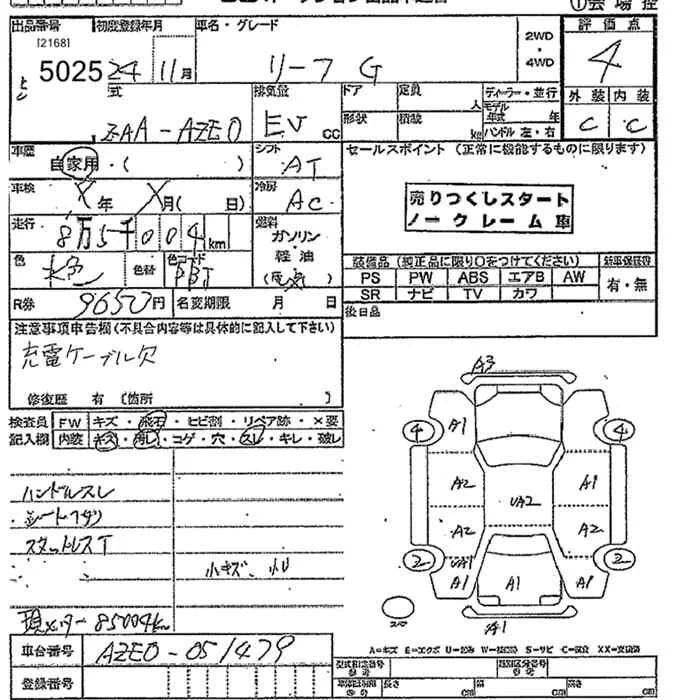 ①会場控
出品番号 初度登録年月 車名・グレード 2WD・4WD 評価点
[2168]
5025 24 11月 リーフ G 4
外装 内装
C C
型式 ZAA-AZE0 排気量 EV cc ドア 定員 人 ディーラー・並行
形状 積載 kg モデル年式 年
ハンドル 左・右
車歴 自家用・( ) シフト AT
セールスポイント (正常に機能するものに限ります)
車検 年 月( 日) 冷房 AC
売りつくしスタート
ノークレーム車
走行 8万5千004km 燃料 ガソリン・軽油
色 色替 色コード
装備品 (純正品に限り○をつけてください) 新車保証書
PS PW ABS エアB AW 有・無
SR ナビ TV カワ
R券 9650円 名変期限 月 日
後日品
注意事項申告欄(不具合内容等は具体的に記入して下さい)
充電ケーブル欠
修復歴 有 〔箇所 〕
検査員記入欄 FW キズ・飛石・ヒビ割・リペア跡・×要
内装 キズ・汚レ・コゲ・穴・スレ・キレ・破レ
ハンドルスレ
シート
スタットレスT
小キズ、凹
現メーター85004km
A3
4 A1 4
A2 UA2 A1
A2 A2
2 UA1 2
A1 A1 A1
A1
車台番号 AZE0-051479
登録番号
A=キズ E=エクボ U=凹み W=波状跡 S=サビ C=腐食 XX=交換済
型式指定番号 類別区分番号
長さ cm 幅 cm 高さ cm